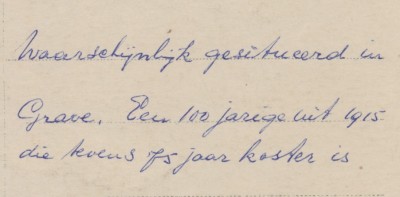 Waarschijnlijk gesitueerd in
Grave. Een 100 jarige uit 1915
die tevens 75 jaar koster is